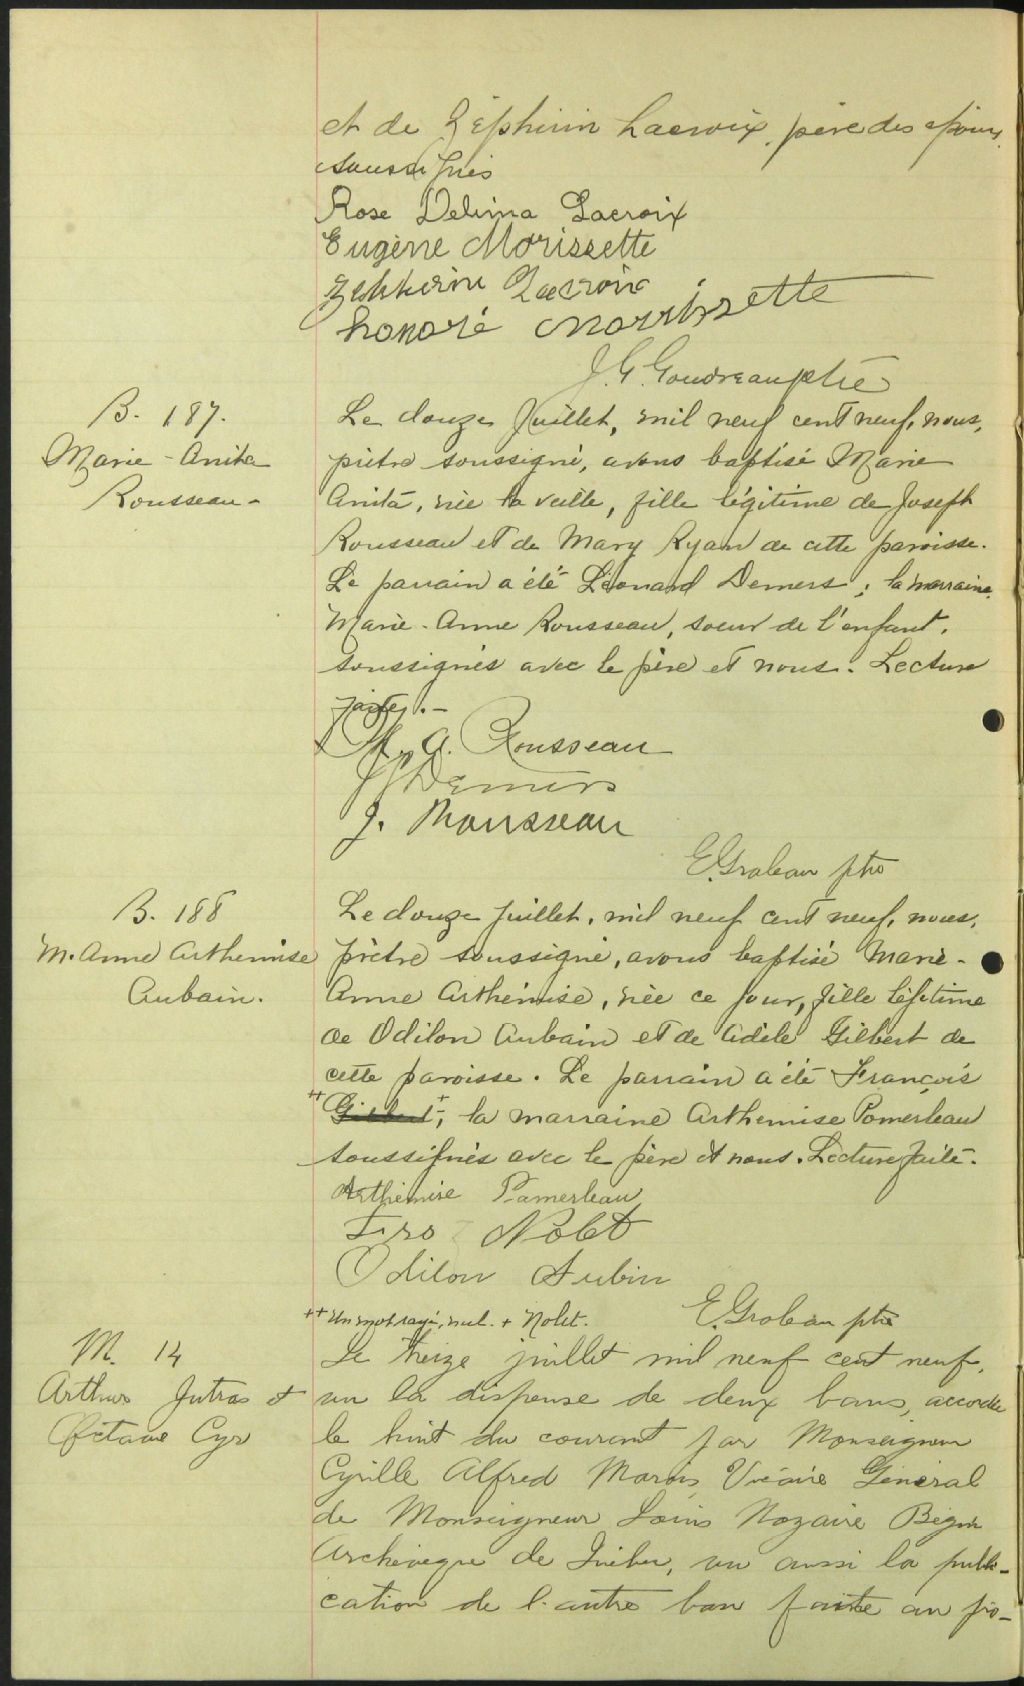 et de Zéphirin Lacroix, père des époux,
soussignés
Rose Delima Lacroix
Eugène Morissette
Zephirin Lacroix
honoré Morrissette
J. G. Goudreau ptre
B. 187.
Marie-Anita
Rousseau-
Le douze Juillet, mil neuf cent neuf, nous,
prêtre soussigné, avons baptisé Marie
Anita, née la veille, fille légitime de Joseph
Rousseau et de Mary Ryan de cette paroisse.
Le parrain a été Léonard Demers; la marraine
Marie-Anne Rousseau, soeur de l'enfant,
soussignés avec le père et nous. Lecture
faite.-
M. A. Rousseau
Demers
J. Rousseau
E. Groleau ptre
B. 188
M. Anne Arthemise
Aubain.
Le douze Juillet, mil neuf cent neuf, nous,
prêtre soussigné, avons baptisé Marie-
Anne Arthémise, née ce jour, fille légitime
de Odilon Aubain et de Adèle Gilbert de
cette paroisse. Le parrain a été François
++ Gilbert +; la marraine Arthemise Pomerleau
soussignés avec le père et nous. Lecture faite.
Arthémise Pomerleau
Frs Nolet
Odilon Aubin
++ Un mot rayé, nul. + Nolet.
E. Groleau ptre
M. 14
Arthur Jutras et
Octavie Cyr
Le treize juillet mil neuf cent neuf,
vu la dispense de deux bans, accordée
le huit du courant par Monseigneur
Cyrille Alfred Marois, Vicaire Général
de Monseigneur Louis Nazaire Bégin
Archevêque de Québec, vu aussi la publi-
cation de l'autre ban faite au prô-